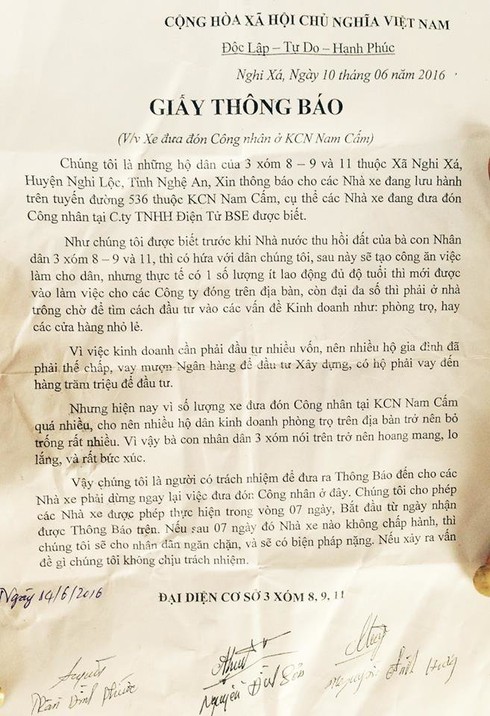 CỘNG HÒA XÃ HỘI CHỦ NGHĨA VIỆT NAM
Độc Lập – Tự Do – Hạnh Phúc
Nghi Xá, Ngày 10 tháng 06 năm 2016
GIẤY THÔNG BÁO
(V/v Xe đưa đón Công nhân ở KCN Nam Cấm)
Chúng tôi là những hộ dân của 3 xóm 8 – 9 và 11 thuộc Xã Nghi Xá,
Huyện Nghi Lộc, Tỉnh Nghệ An, Xin thông báo cho các Nhà xe đang lưu hành
trên tuyến đường 536 thuộc KCN Nam Cấm, cụ thể các Nhà xe đang đưa đón
Công nhân tại C.ty TNHH Điện Tử BSE được biết.
Như chúng tôi được biết trước khi Nhà nước thu hồi đất của bà con Nhân
dân 3 xóm 8 – 9 và 11, thì có hứa với dân chúng tôi, sau này sẽ tạo công ăn việc
làm cho dân, nhưng thực tế có 1 số lượng ít lao động đủ độ tuổi thì mới được
vào làm việc cho các Công ty đóng trên địa bàn, còn đại đa số thì phải ở nhà
trông chờ để tìm cách đầu tư vào các vấn đề Kinh doanh như: phòng trọ, hay
các cửa hàng nhỏ lẻ.
Vì việc kinh doanh cần phải đầu tư nhiều vốn, nên nhiều hộ gia đình đã
phải thế chấp, vay mượn Ngân hàng để đầu tư Xây dựng, có hộ phải vay đến
hàng trăm triệu để đầu tư.
Nhưng hiện nay vì số lượng xe đưa đón Công nhân tại KCN Nam Cấm
quá nhiều, cho nên nhiều hộ dân kinh doanh phòng trọ trên địa bàn trở nên bỏ
trống rất nhiều. Vì vậy bà con nhân dân 3 xóm nói trên trở nên hoang mang, lo
lắng, và rất bức xúc.
Vậy chúng tôi là người có trách nhiệm để đưa ra Thông Báo đến cho các
Nhà xe phải dừng ngay lại việc đưa đón Công nhân ở đây. Chúng tôi cho phép
các Nhà xe được phép thực hiện trong vòng 07 ngày, Bắt đầu từ ngày nhận
được Thông Báo trên. Nếu sau 07 ngày đó Nhà xe nào không chấp hành, thì
chúng tôi sẽ cho nhân dân ngăn chặn, và sẽ có biện pháp nặng. Nếu xảy ra vấn
đề gì chúng tôi không chịu trách nhiệm.
Ngày 14/6/2016
ĐẠI DIỆN CƠ SỞ 3 XÓM 8, 9, 11
Trần Đình Phước
Nguyễn Đình
Nguyễn Đình Hưng